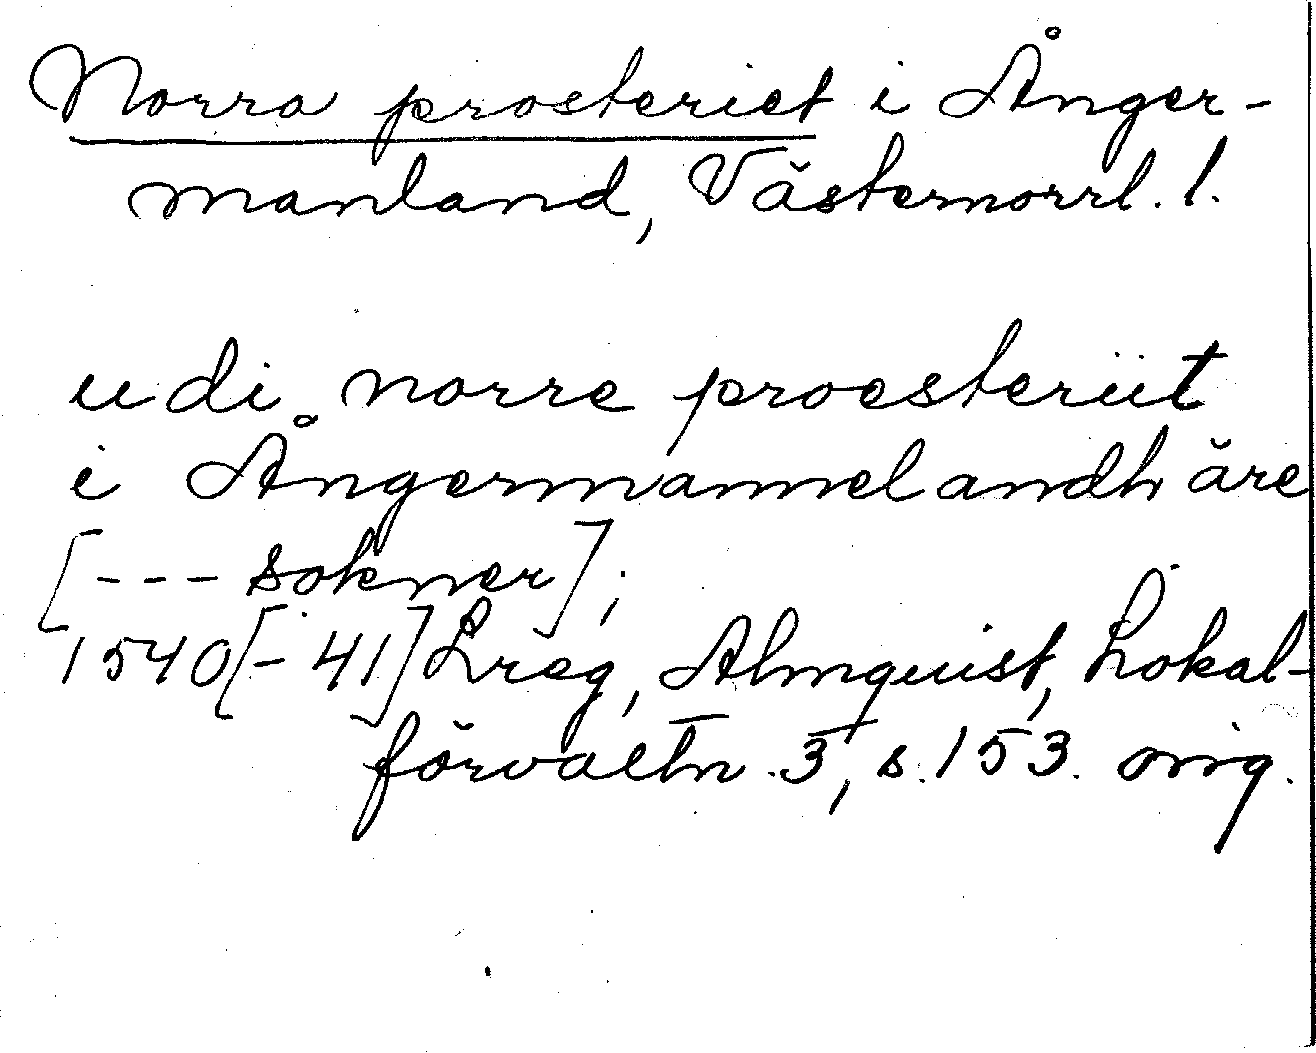 Norra prosteriet i Ånger-
manland, Västernorrl. l.
udi norre proesteriit
i Ångermannelandh äre
[--- sokner];
1540[-41] Lreg, Almquist, Lokal-
förvaltn. 3, s. 153. orig.